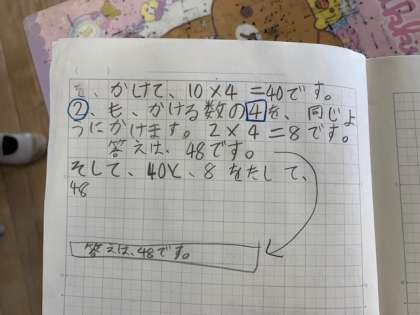 、かけて、10×4=40です。
②、も、かける数の4を、同じよ
うにかけます。2×4=8です。
答えは、48です。
そして、40と、8をたして、
48
答えは、48です。